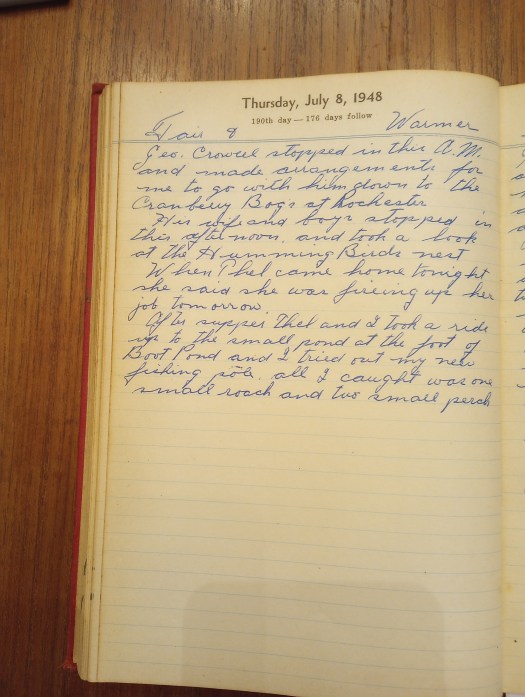 Thursday, July 8, 1948
190th day — 176 days follow
Fair & Warmer
Geo. Crowell stopped in this A.M.
and made arrangements for
me to go with him down to the
Cranberry Bogs at Rochester
His wife and boys stopped in
this afternoon. and took a look
at the Humming Birds nest
When Thel came home tonight
she said she was giving up her
job tomorrow.
After supper Thel and I took a ride
up to the small pond at the foot of
Boot Pond and I tried out my new
fishing pole. all I caught was one
small roach and two small perch